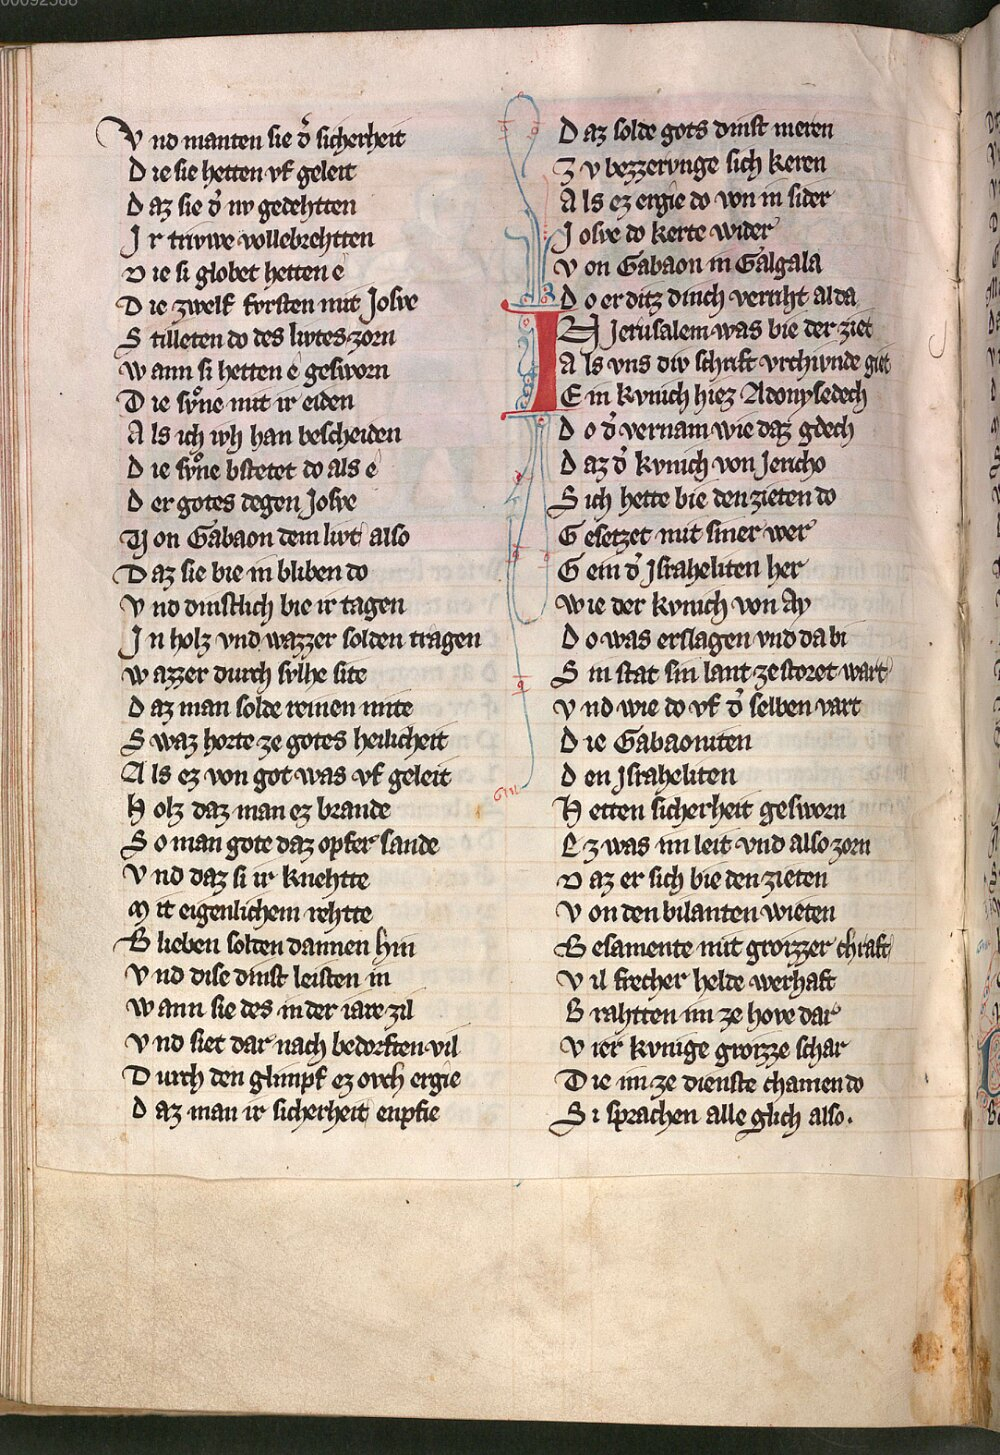 00092588
Vnd manten sie d̾ sicherheit
Die sie hetten vf geleit
Daz sie d̾ nv gedehtten
Ir trivwe vollebrehtten
Die si globet hetten e
Die zwelf fvrsten mit Josve
Stilleten do des livtes zorn
Wann si hetten ê gesworn
Die svͦne mit ir eiden
Als ich ivh han bescheiden
Die svͦne bstetet do als ê
Der gotes degen Josve
Von Gabaon dem livt also
Daz sie bie in bliben do
Vnd dinstlich bie ir tagen
In holz vnd wazzer solden tragen
Wazzer durch svlhe site
Daz man solde reinen mite
Swaz horte ze gotes heilicheit
Als ez von got was vf geleit
Holz daz man ez brande
So man gote daz opfer sande
Vnd daz si ir knehtte
Mit eigenlichem rehtte
Blieben solten dannen hin
Vnd dise dinst leisten in
Wann sie des in der iare zil
Vnd siet dar nach bedorften vil
Durch den glimpf ez ovch ergie
Daz man ir sicherheit enpfie
Daz solde gots dinst meren
Zv bezzervnge sich keren
Als ez ergie do von in sider
Josve do kerte wider
Von Gabaon in Galgala
Do er ditz dinch verriht alda
IN Jerusalem was bie der ziet
Als vns div schrift vrchivnde giet
Ein kvnich hiez Adonysedech
Do d̾ vernam wie daz gdech
Daz d̾ kvnich von Jericho
Sich hette bie den zieten do
Gesetzet mit siner wer
Gein d̾ Israheliten her
Wie der kvnich von Ay
Do was erslagen vnd da bi
Sin stat sin lant zestoret wart
Vnd wie do vf d̾ selben vart
Die Gabaoniten
Den Israheliten
Hetten sicherheit gesworn
Ez was im leit vnd also zorn
Daz er sich bie den zieten
Von den bilanten wieten
Besamente mit groizzer chraft
Vil frecher helde werhaft
Brahtten im ze hove dar
Vier kvnige groizze schar
Die im ze dienste chamen do
Si sprachen alle glich also.